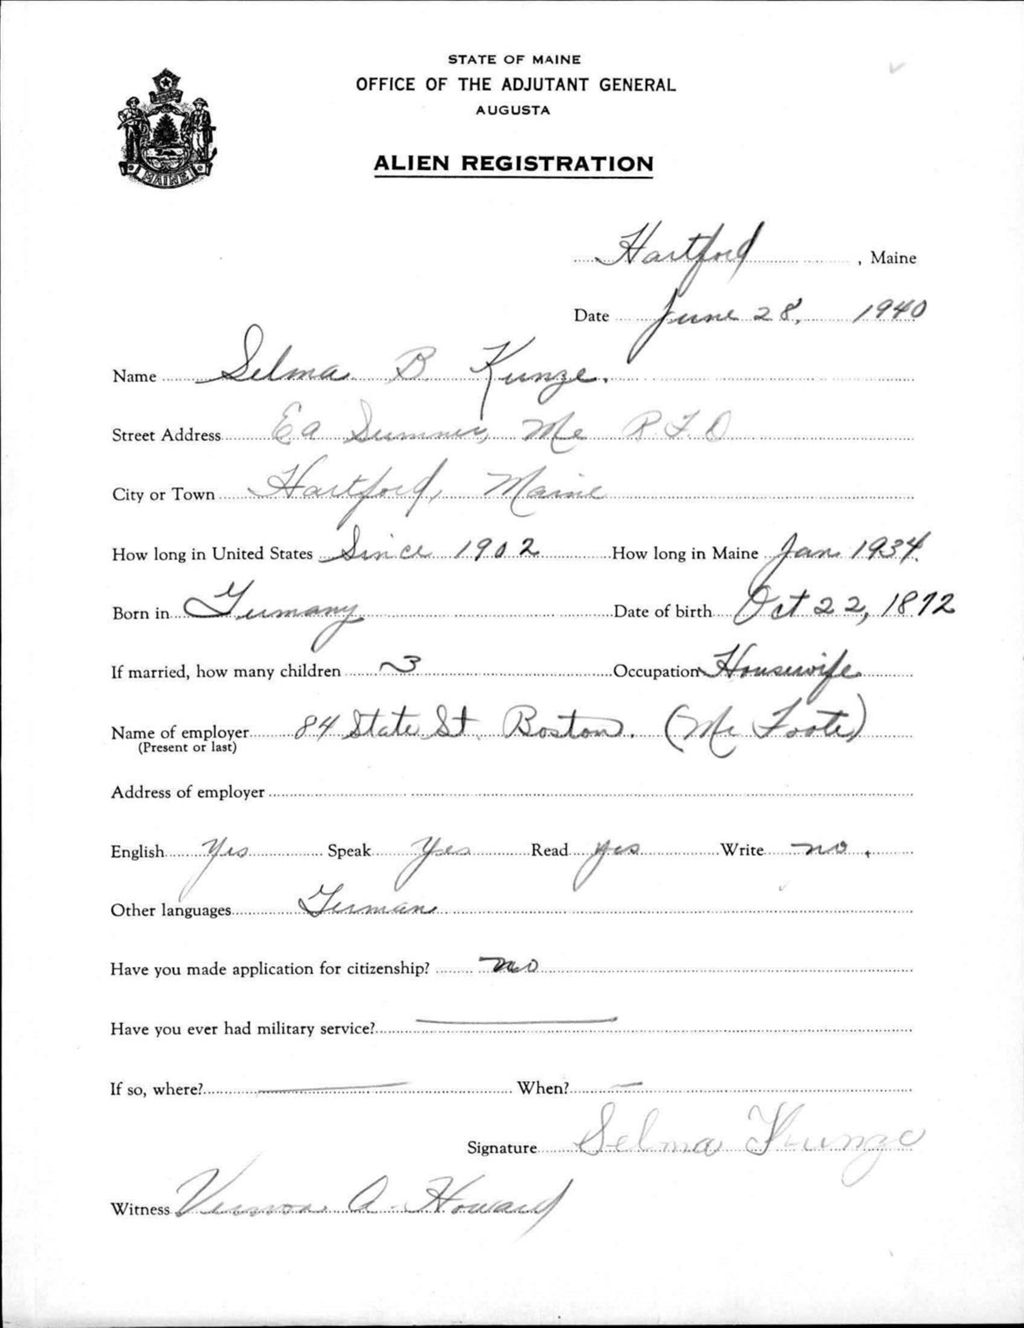 STATE OF MAINE
OFFICE OF THE ADJUTANT GENERAL
AUGUSTA
MAINE
ALIEN REGISTRATION
Hartford, Maine
Date June 28, 1940
Name Selma B. Kunze.
Street Address Ea Sumner, Me R.F.D
City or Town Hartford, Maine
How long in United States Since 1902 How long in Maine Jan 1934.
Born in Germany Date of birth Oct 22, 1872
If married, how many children 3 Occupation Housewife
Name of employer 84 State St. Boston. (Mr Foote)
(Present or last)
Address of employer
English Yes Speak Yes Read yes Write no.
Other languages German
Have you made application for citizenship? no
Have you ever had military service? —
If so, where? — When? —
Signature Selma Kunze
Witness Vernon A. Howard